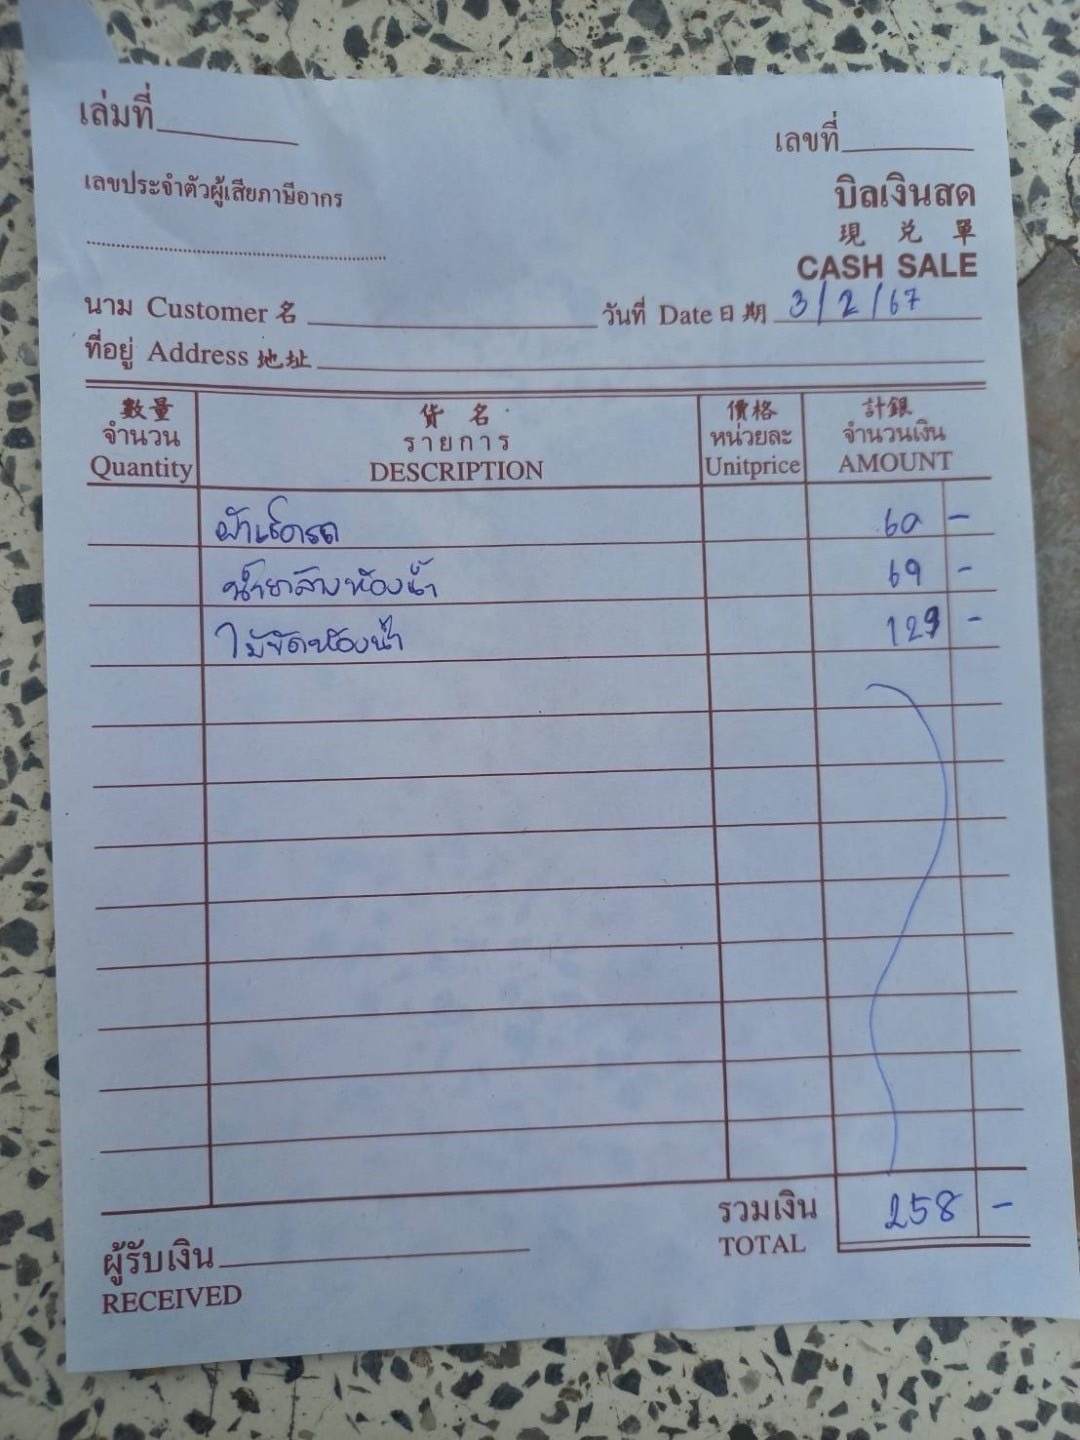 เล่มที่
เลขที่
เลขประจำตัวผู้เสียภาษีอากร
บิลเงินสด
現兑單
CASH SALE
นาม Customer 名
วันที่ Date 日期 3/2/67
ที่อยู่ Address 地址
數量 貨名 價格 計銀
จำนวน รายการ หน่วยละ จำนวนเงิน
Quantity DESCRIPTION Unitprice AMOUNT
ผ้าเช็ดรถ 60 -
น้ำยาล้างห้องน้ำ 69 -
ไม้ขัดห้องน้ำ 129 -
รวมเงิน 258 -
TOTAL
ผู้รับเงิน
RECEIVED